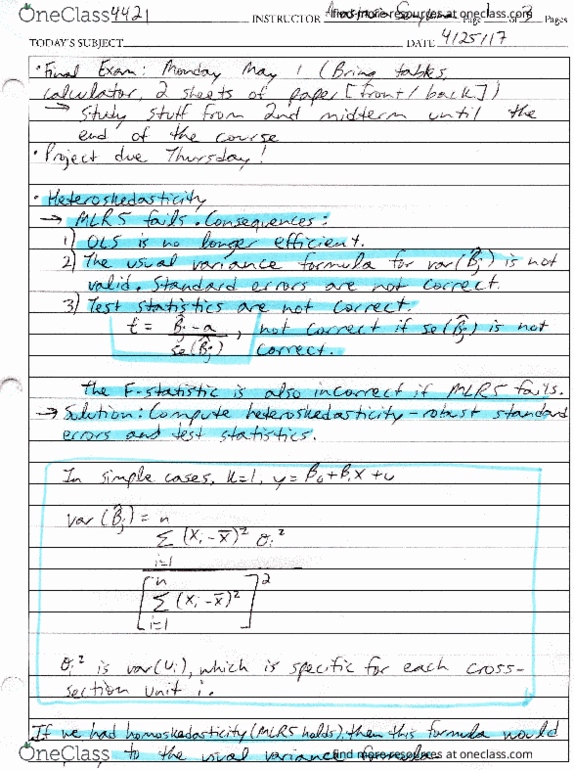 OneClass 4421 INSTRUCTOR find more resources at oneclass.com of 3 Pages
TODAY'S SUBJECT DATE 4/25/17
• Final Exam: Monday May 1 (Bring tables,
calculator, 2 sheets of paper [front/back])
→ Study stuff from 2nd midterm until the
end of the course
• Project due Thursday!
• Heteroskedasticity
→ MLR5 fails. Consequences:
1) OLS is no longer efficient.
2) The usual variance formula for var(β̂j) is not
valid. Standard errors are not correct.
3) Test statistics are not correct.
t = β̂j - a / se(β̂j), not correct if se(β̂j) is not
correct.
The F-statistic is also incorrect if MLR5 fails.
→ Solution: Compute heteroskedasticity-robust standard
errors and test statistics.
In simple cases, k=1, y = β0 + β1x + u
var(β̂j) = n
Σ (xi - x̄)² σi²
i=1
n ]²
[ Σ (xi - x̄)²
i=1
σi² is var(ui), which is specific for each cross-
section unit i.
If we had homoskedasticity (MLR5 holds), then this formula would
OneClass to the usual variance formula. find more resources at oneclass.com